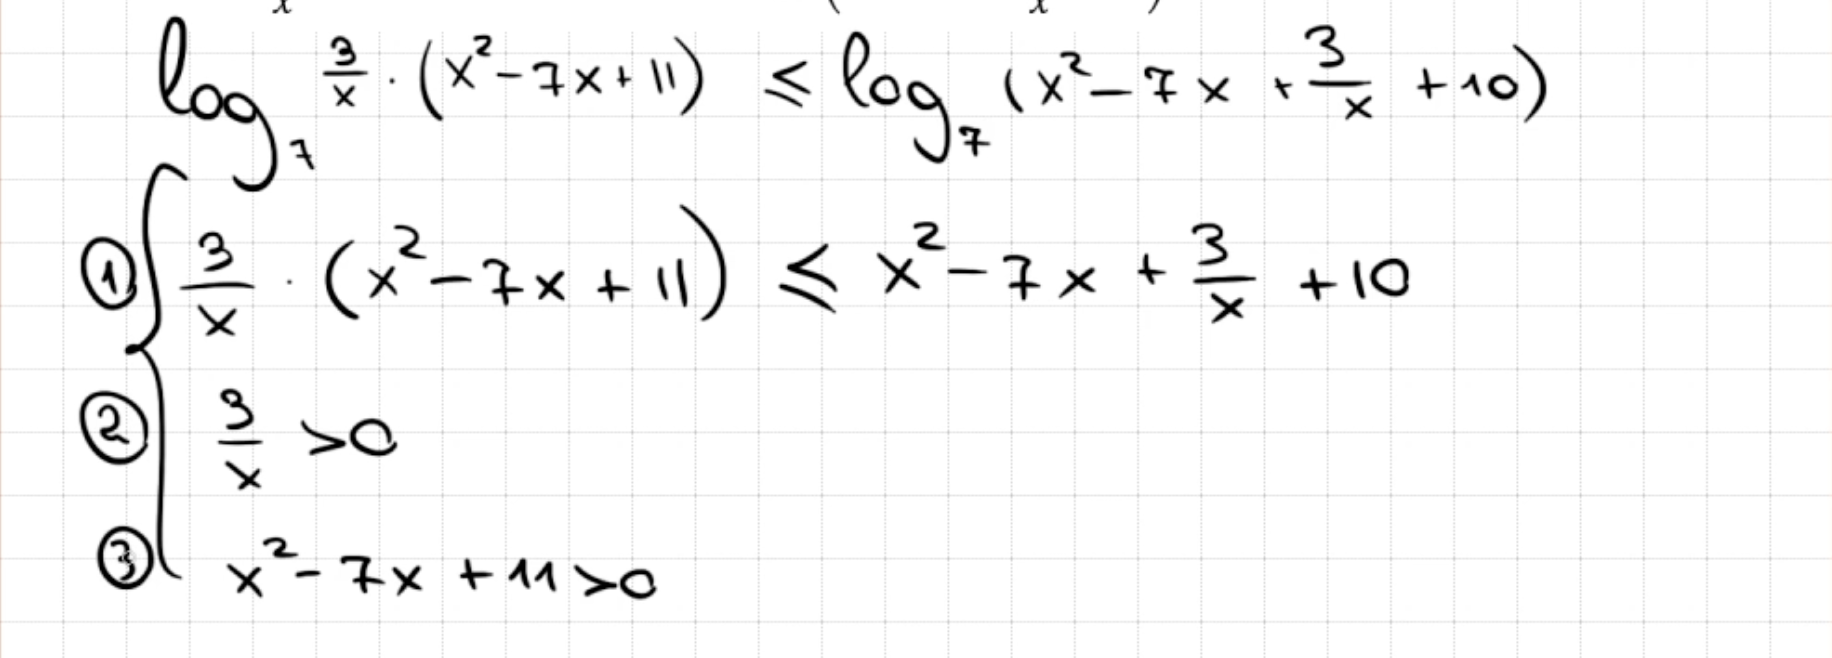 log₇ 3/x · (x² - 7x + 11) ≤ log₇ (x² - 7x + 3/x + 10)
① { 3/x · (x² - 7x + 11) ≤ x² - 7x + 3/x + 10
② 3/x > 0
③ x² - 7x + 11 > 0